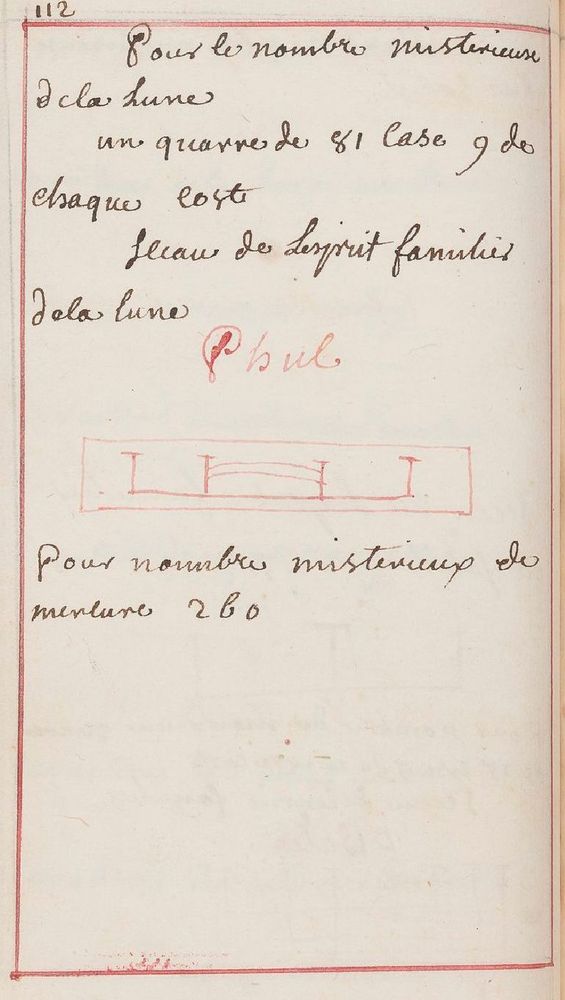 112
Pour le nombre misterieuse
de la Lune
un quarre de 81 Case 9 de
chaque Coste
Sceau de Lesprit familier
de la lune
Phul
Pour nonmbre misterieux de
mercure 260